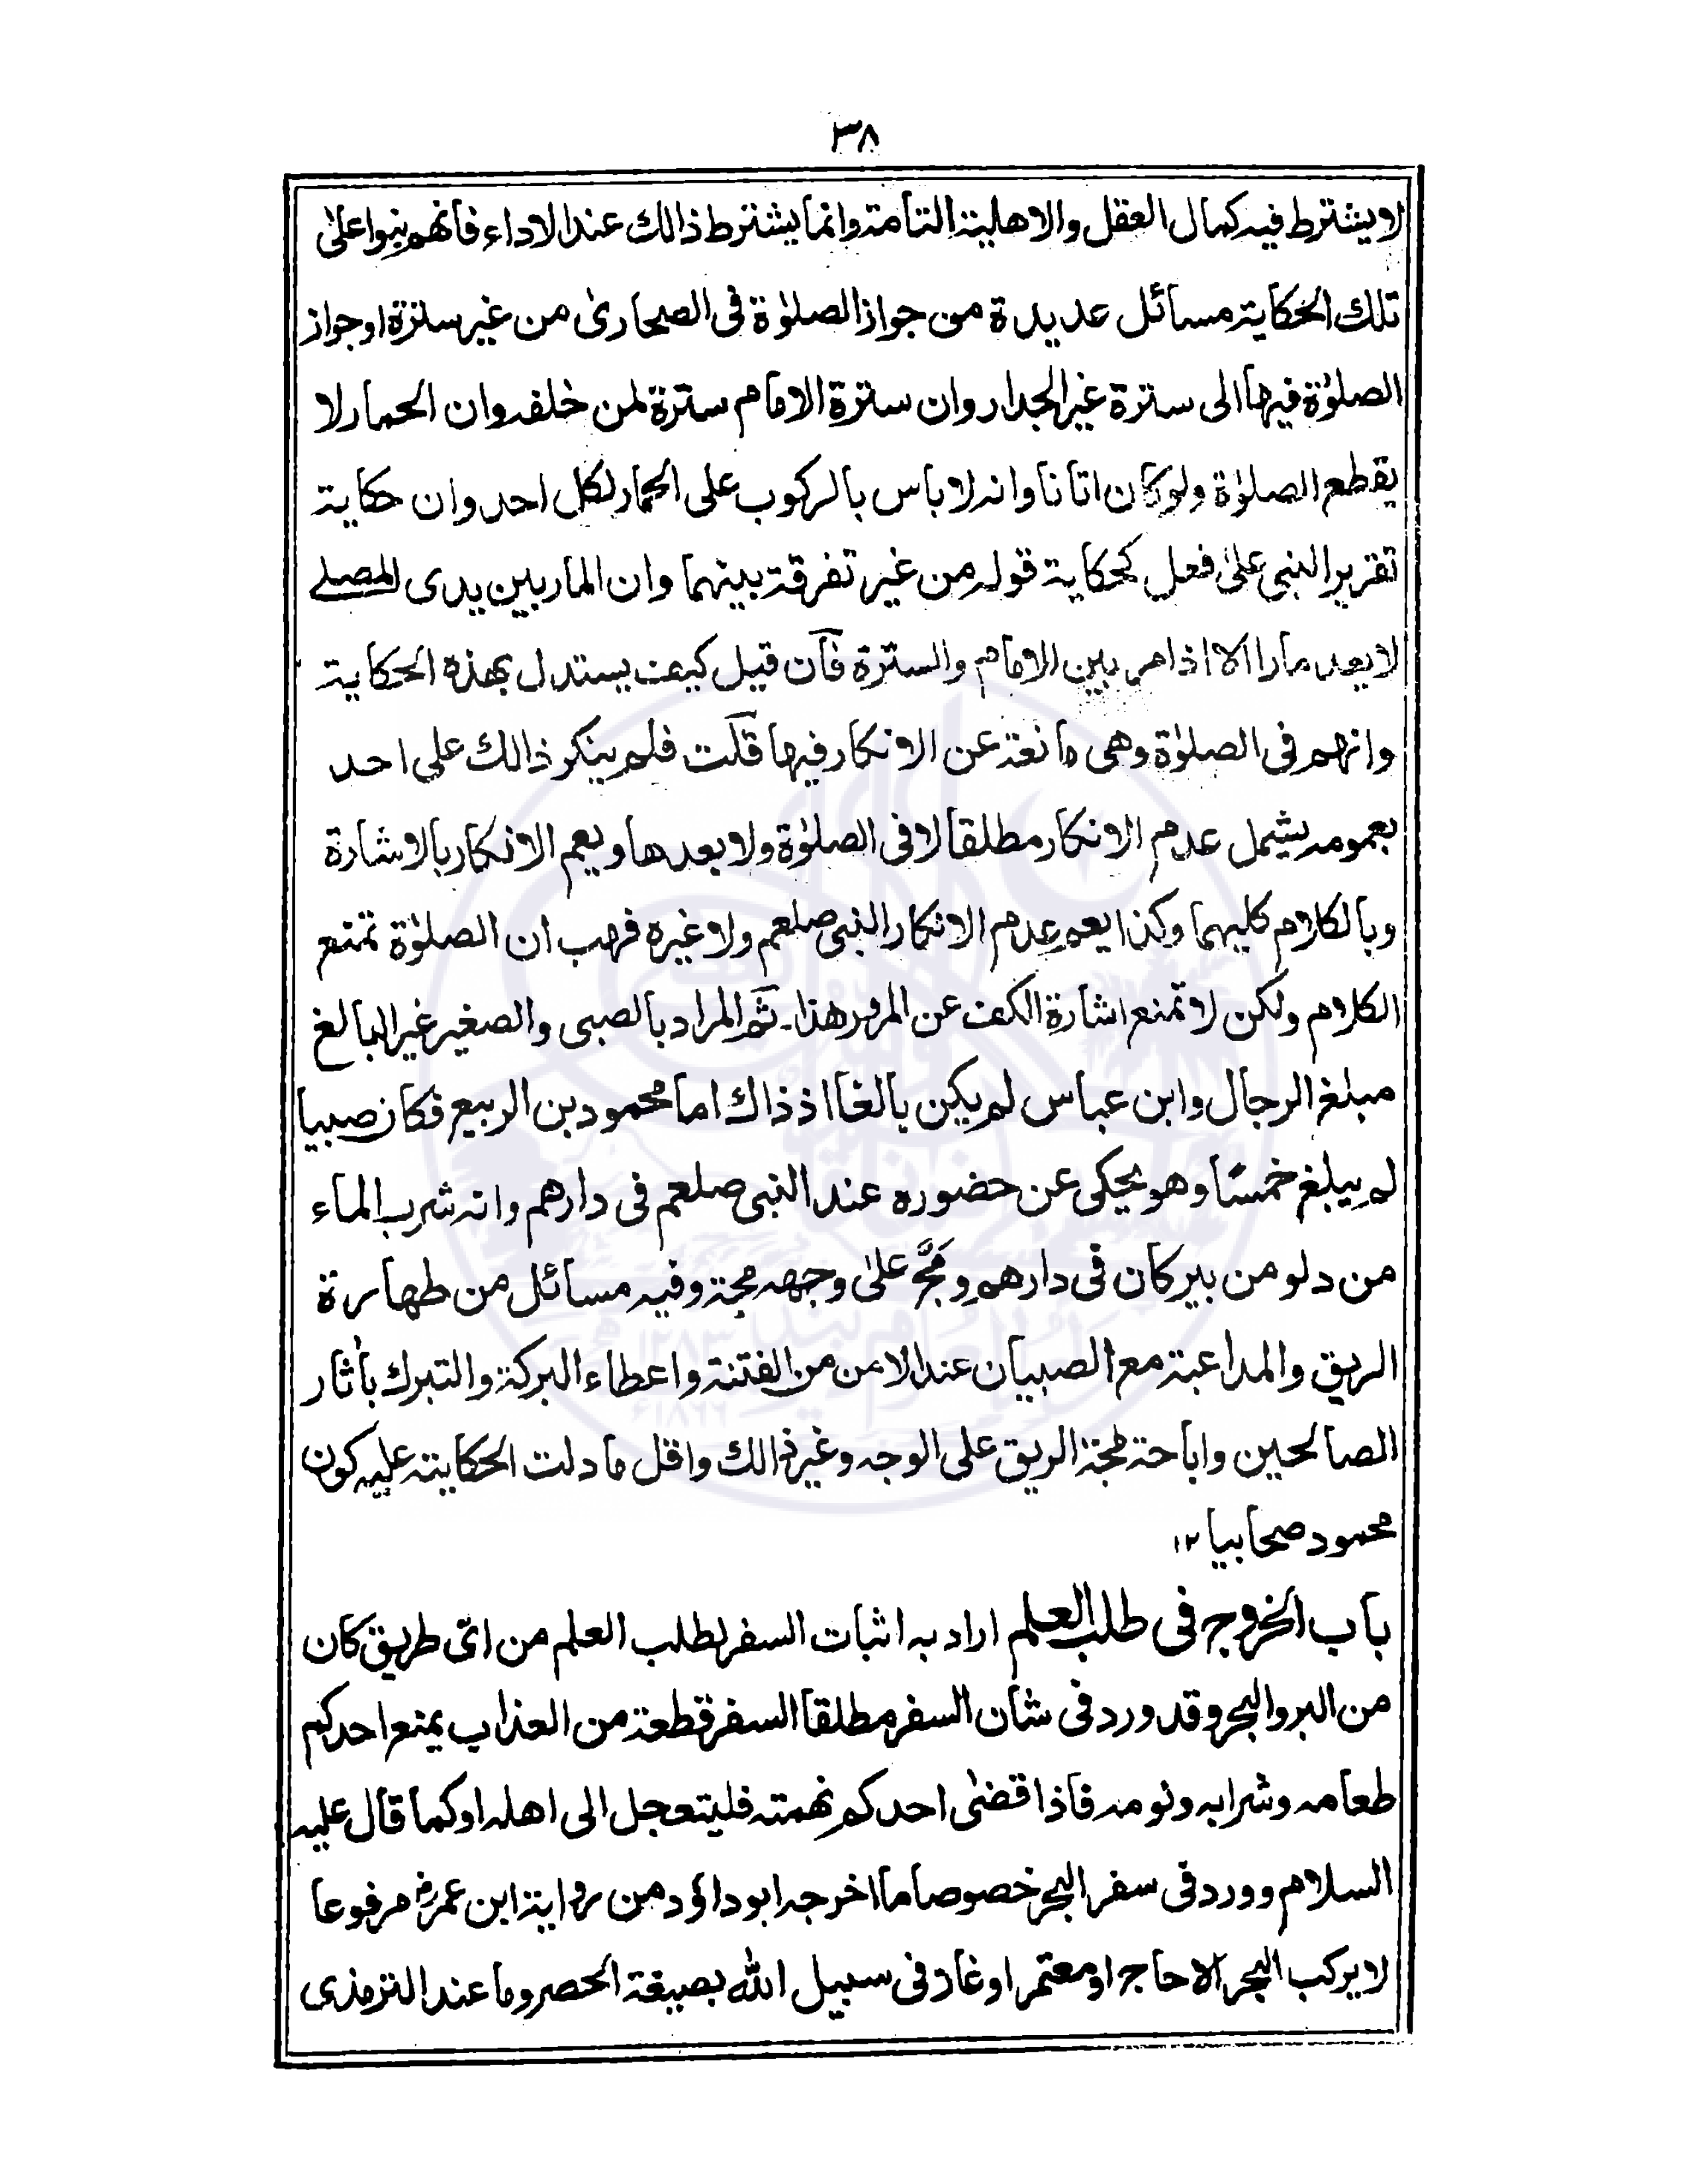 ٣٨
لا يشترط فيه كمال العقل والاهلية التامة وانما يشترط ذالك عند الاداء فانهم بنوا علىٰ
تلك الحكاية مسائل عديدة من جواز الصلوٰة فى الصحارىٰ من غير سترة او جواز
الصلوٰة فيها الى سترة غير الجدار وان سترة الامام سترة لمن خلفه وان الحمار لا
يقطع الصلوٰة ولو كان اتانا وانه لا باس بالركوب على الحمار لكل احد وان حكاية
تقرير النبى علىٰ فعل كحكاية قوله من غير تفرقة بينهما وان المار بين يدى المصلے
لا يعد مارا الا اذا مر بين الامام والسترة فان قيل كيف يستدل بهذه الحكاية
وانهم فى الصلوٰة وهى مانعة عن الانكار فيها قلت فلم ينكر ذالك على احد
بعمومه يشمل عدم الانكار مطلقا لا فى الصلوٰة ولا بعدها ويعم الانكار بالاشارة
وبالكلام كليهما وكذا يعم عدم الانكار النبى صلعم ولا غيره فهب ان الصلوٰة تمنع
الكلام ولكن لا تمنع اشارة الكف عن المرور هذا۔ ثم المراد بالصبى والصغير غير البالغ
مبلغ الرجال وابن عباس لم يكن بالغا اذ ذاك اما محمود بن الربيع فكان صبيا
لم يبلغ خمسًا وهو يحكى عن حضوره عند النبى صلعم فى دارهم وانه شرب الماء
من دلو من بير كان فى دارهم ومَجَّ علىٰ وجهه مجة وفيه مسائل من طهارة
الريق والمداعبة مع الصبيان عند الامن من الفتنة واعطاء البركة والتبرك بأثار
الصالحين واباحة مجة الريق على الوجه وغير ذالك واقل ما دلت الحكاية عليه كون
محمود صحابيا ١٢
باب الخروج فى طلب العلم اراد به اثبات السفر لطلب العلم من اىّ طريق كان
من البر والبحر وقد ورد فى شان السفر مطلقا السفر قطعة من العذاب يمنع احدكم
طعامه وشرابه ونومه فاذا قضىٰ احدكم نهمته فليتعجل الى اهله او كما قال عليه
السلام وورد فى سفر البحر خصوصا ما اخرجه ابو داؤد من رواية ابن عمرؓ مرفوعا
لا يركب البحر الا حاج او معتمر او غاز فى سبيل الله بصيغة الحصر وما عند الترمذى